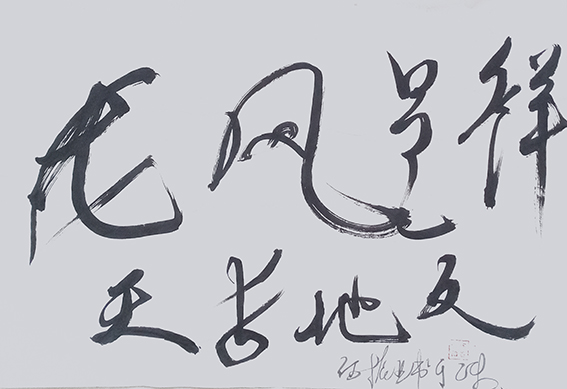 龙凤呈祥
天长地久